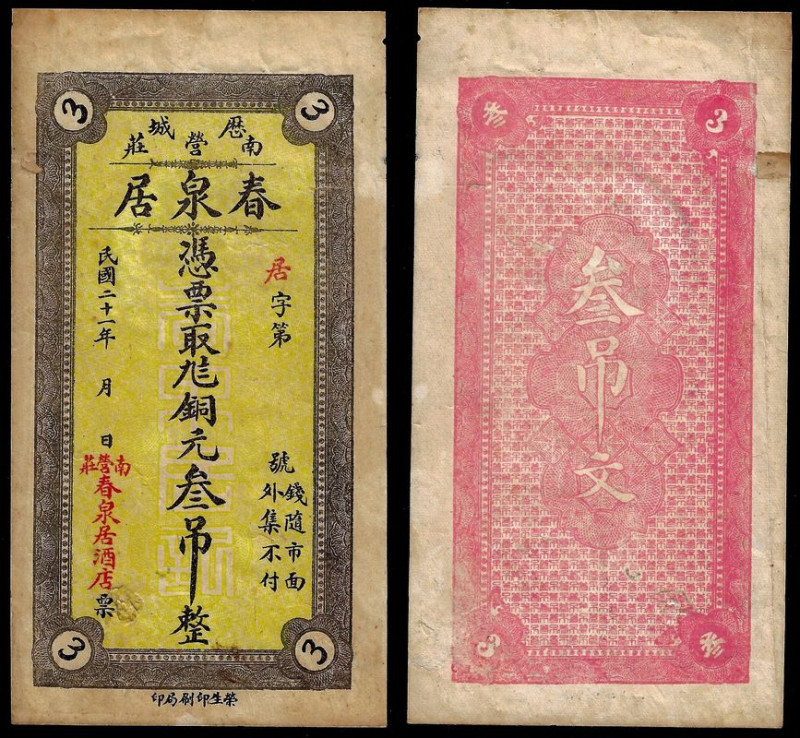 3
3
厯城
南營莊
春泉居
居字第 號
錢隨市面
外集不付
憑票取 銅元叁吊整
民國二十一年 月 日
南營莊
春泉居酒店票
3
3
榮生印刷局印
叁
3
叁吊文
3
叁